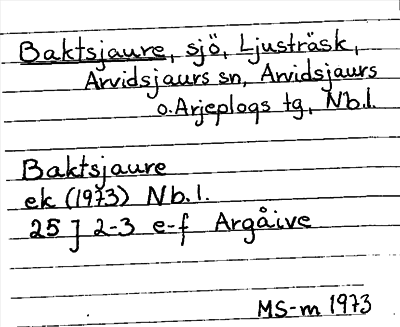 Baktsjaure, sjö, Ljusträsk,
Arvidsjaurs sn, Arvidsjaurs
o. Arjeplogs tg, Nb.l.
Baktsjaure
ek (1973) Nb.l.
25 J 2-3 e-f Argåive
MS-m 1973